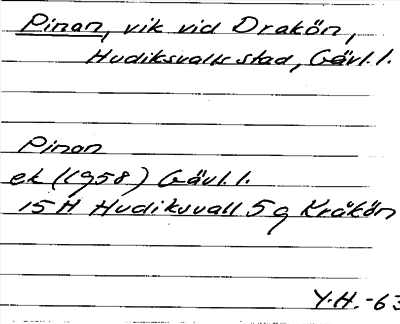 Pinan, vik vid Drakön,
Hudiksvalls stad, Gävl.l.
Pinan
ek (1958) Gävl.l.
15H Hudiksvall 5g Kråkön
Y.H. -63